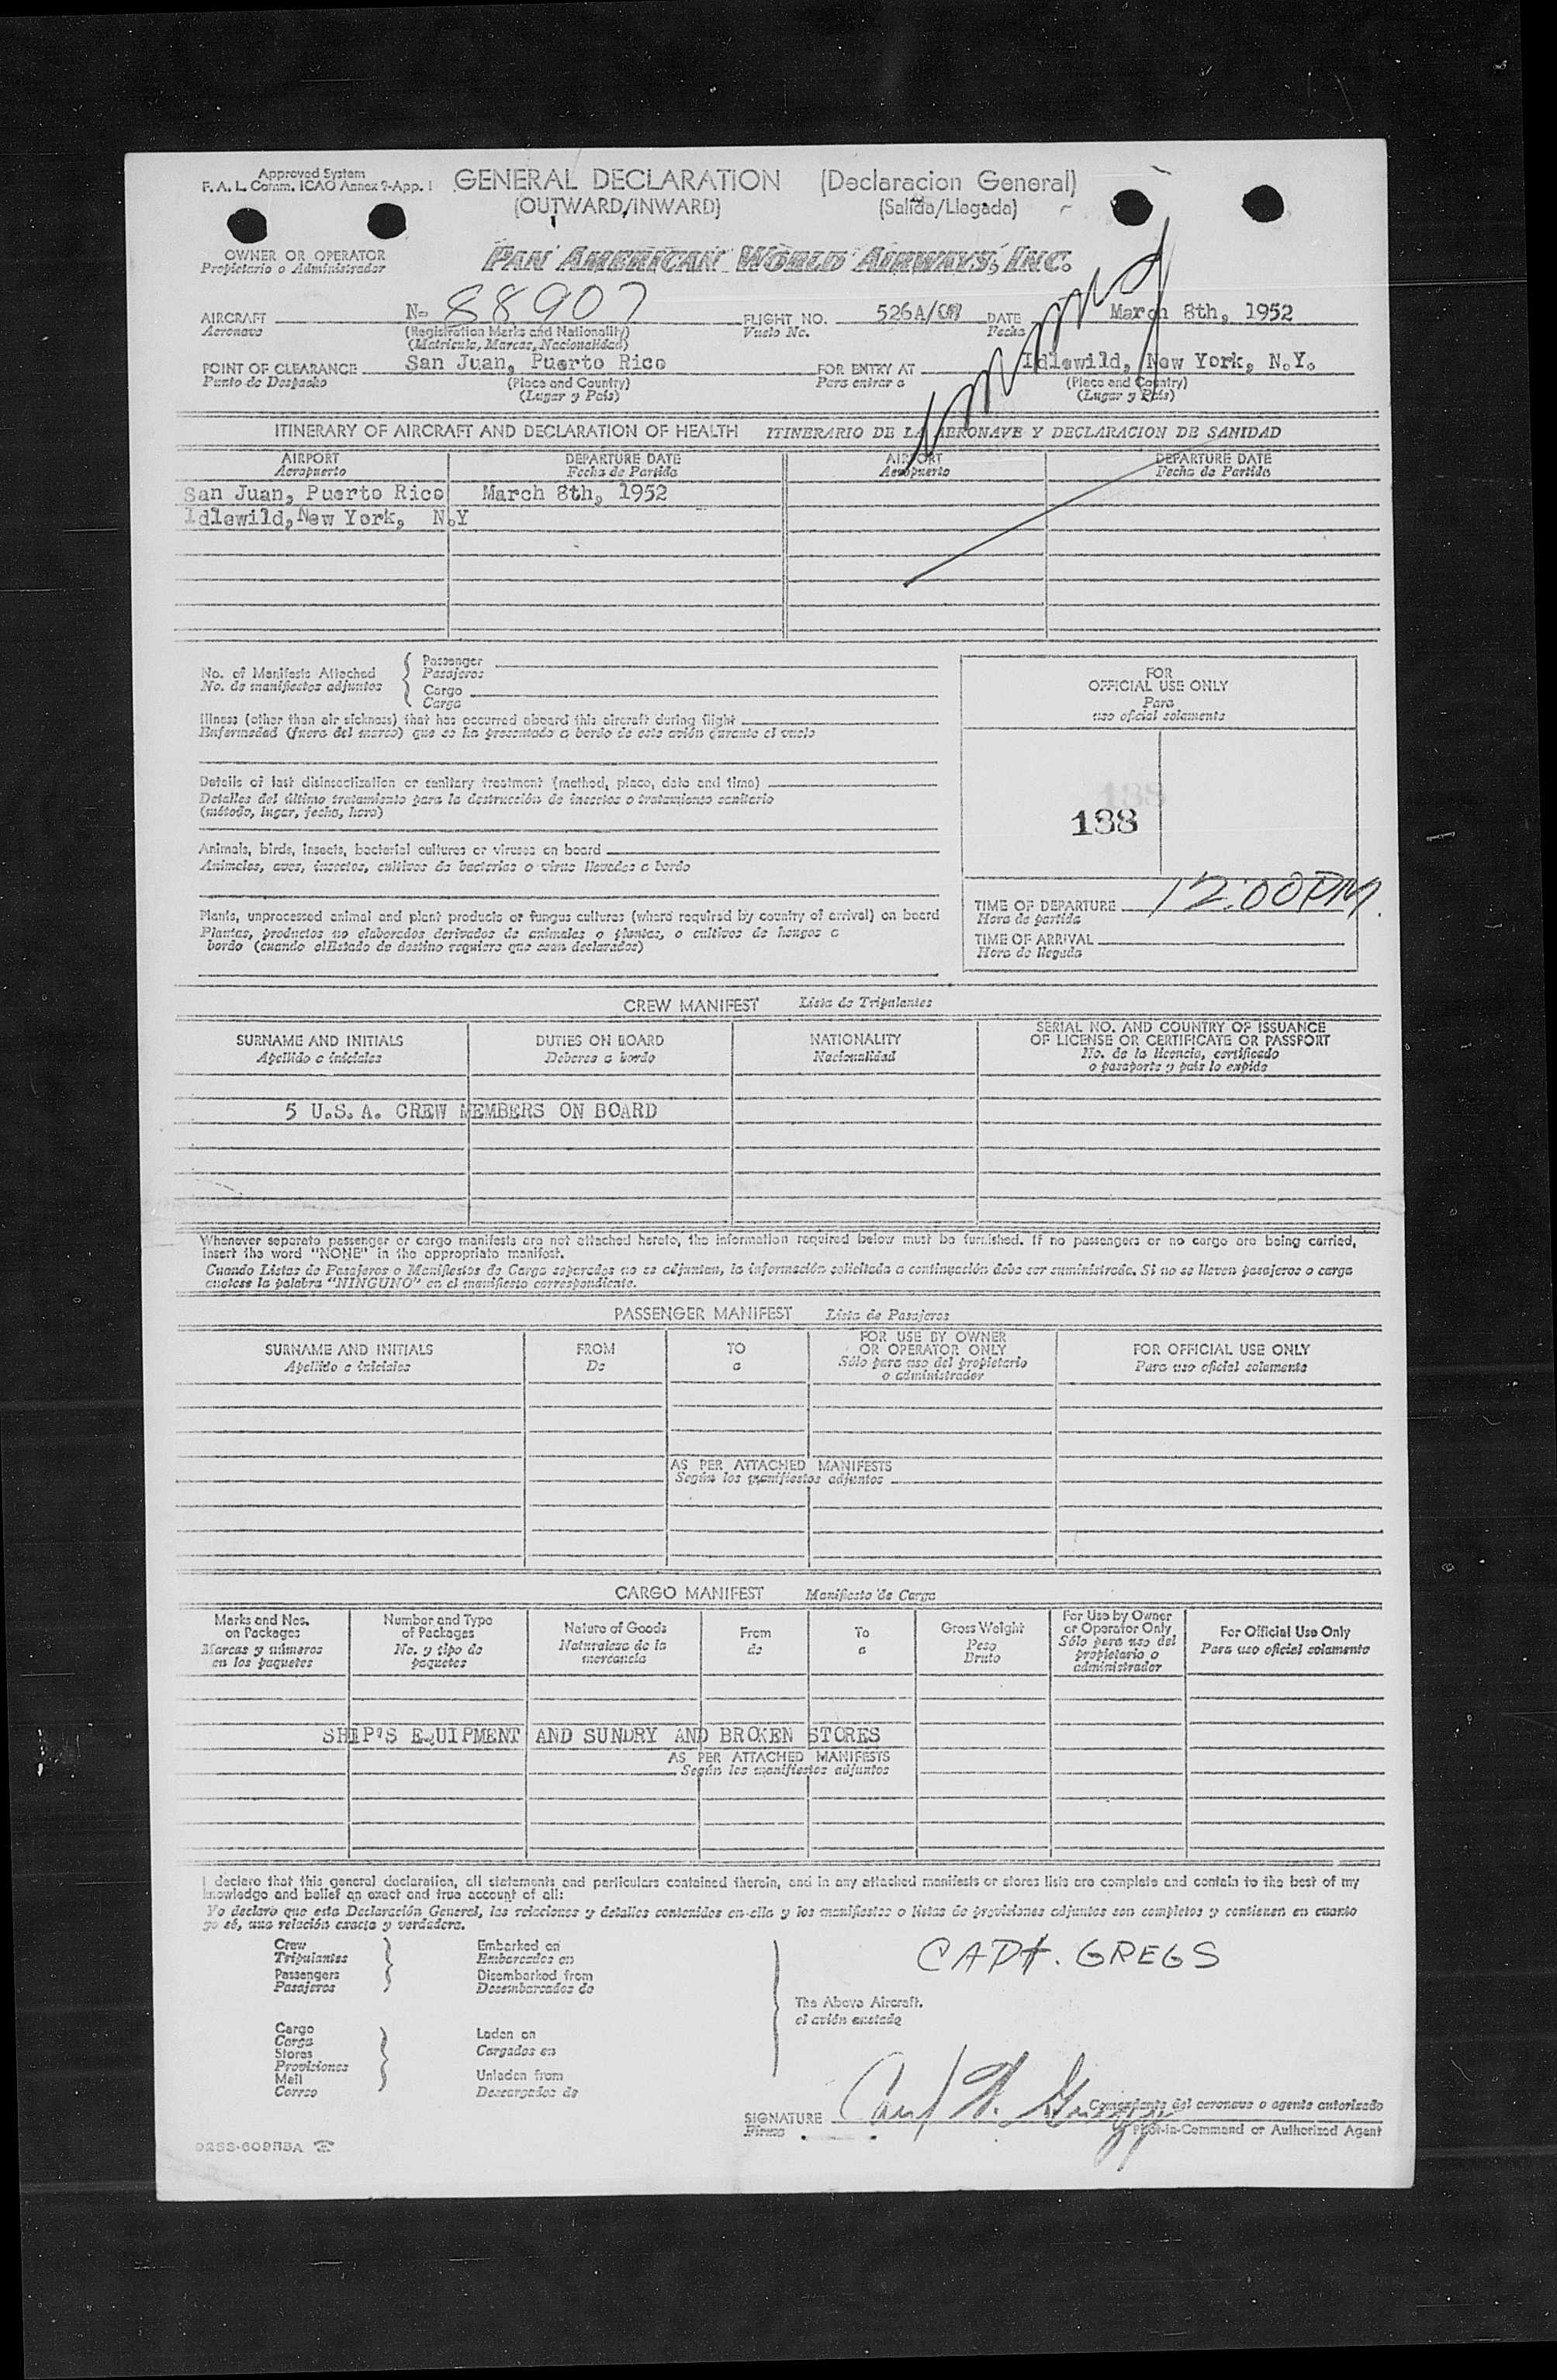 Approved System
F. A. L. Comm. ICAO Annex 9-App. 1
GENERAL DECLARATION (Declaracion General)
(OUTWARD/INWARD) (Salida/Llegada)
OWNER OR OPERATOR
Propietario o Administrador
PAN AMERICAN WORLD AIRWAYS, INC.
AIRCRAFT N- 88907 FLIGHT NO. 526A/ DATE March 8th, 1952
Aeronave (Registration Marks and Nationality) Vuelo No. Fecha
(Matricula, Marcas, Nacionalidad)
POINT OF CLEARANCE San Juan, Puerto Rico FOR ENTRY AT Idlewild, New York, N.Y.
Punto de Despacho (Place and Country) Para entrar a (Place and Country)
(Lugar y País) (Lugar y País)
ITINERARY OF AIRCRAFT AND DECLARATION OF HEALTH ITINERARIO DE LA AERONAVE Y DECLARACION DE SANIDAD
AIRPORT DEPARTURE DATE AIRPORT DEPARTURE DATE
Aeropuerto Fecha de Partida Aeropuerto Fecha de Partida
San Juan, Puerto Rico March 8th, 1952
Idlewild, New York, N.Y
No. of Manifests Attached
No. de manifiestos adjuntos
Passenger
Pasajeros
Cargo
Carga
Illness (other than air sickness) that has occurred aboard this aircraft during flight
Enfermedad (fuera del mareo) que se ha presentado a bordo de este avión durante el vuelo
Details of last disinsectization or sanitary treatment (method, place, date and time)
Detalles del último tratamiento para la destrucción de insectos o tratamiento sanitario
(método, lugar, fecha, hora)
Animals, birds, insects, bacterial cultures or viruses on board
Animales, aves, insectos, cultivos de bacterias o virus llevados a bordo
Plants, unprocessed animal and plant products or fungus cultures (where required by country of arrival) on board
Plantas, productos no elaborados derivados de animales o plantas, o cultivos de hongos a
bordo (cuando elEstado de destino requiere que sean declarados)
FOR
OFFICIAL USE ONLY
Para
uso oficial solamente
138
138
TIME OF DEPARTURE 12:00PM.
Hora de partida
TIME OF ARRIVAL
Hora de llegada
CREW MANIFEST Lista de Tripulantes
SURNAME AND INITIALS DUTIES ON BOARD NATIONALITY SERIAL NO. AND COUNTRY OF ISSUANCE
OF LICENSE OR CERTIFICATE OR PASSPORT
Apellido e iniciales Deberes a bordo Nacionalidad No. de la licencia, certificado
o pasaporte y país lo expide
5 U.S.A. CREW MEMBERS ON BOARD
Whenever separate passenger or cargo manifests are not attached hereto, the information required below must be furnished. If no passengers or no cargo are being carried,
insert the word "NONE" in the appropriate manifest.
Cuando Listas de Pasajeros o Manifiestos de Carga separados no se adjuntan, la información solicitada a continuación debe ser suministrada. Si no se lleven pasajeros o carga
anotese la palabra "NINGUNO" en el manifiesto correspondiente.
PASSENGER MANIFEST Lista de Pasajeros
SURNAME AND INITIALS FROM TO FOR USE BY OWNER
OR OPERATOR ONLY FOR OFFICIAL USE ONLY
Apellido e iniciales De a Sólo para uso del propietario
o administrador Para uso oficial solamente
AS PER ATTACHED MANIFESTS
Según los manifiestos adjuntos
CARGO MANIFEST Manifiesto de Carga
Marks and Nos.
on Packages
Marcas y números
en los paquetes
Number and Type
of Packages
No. y tipo de
paquetes
Nature of Goods
Naturaleza de la
mercancía
From
de
To
a
Gross Weight
Peso
Bruto
For Use by Owner
or Operator Only
Sólo para uso del
propietario o
administrador
For Official Use Only
Para uso oficial solamente
SHIP'S EQUIPMENT AND SUNDRY AND BROKEN STORES
AS PER ATTACHED MANIFESTS
Según los manifiestos adjuntos
I declare that this general declaration, all statements and particulars contained therein, and in any attached manifests or stores lists are complete and contain to the best of my
knowledge and belief an exact and true account of all:
Yo declaro que esta Declaración General, las relaciones y detalles contenidos en ella y los manifiestos o listas de provisiones adjuntos son completos y contienen en cuanto
yo sé, una relación exacta y verdadera.
Crew
Tripulantes
Passengers
Pasajeros
Embarked on
Embarcados en
Disembarked from
Desembarcados de
CAPt. GREGS
The Above Aircraft.
el avión anotado
Cargo
Carga
Stores
Provisiones
Mail
Correo
Laden on
Cargados en
Unladen from
Descargados de
Comandante del aeronave o agente autorizado
SIGNATURE
Firma
Pilot-in-Command or Authorized Agent